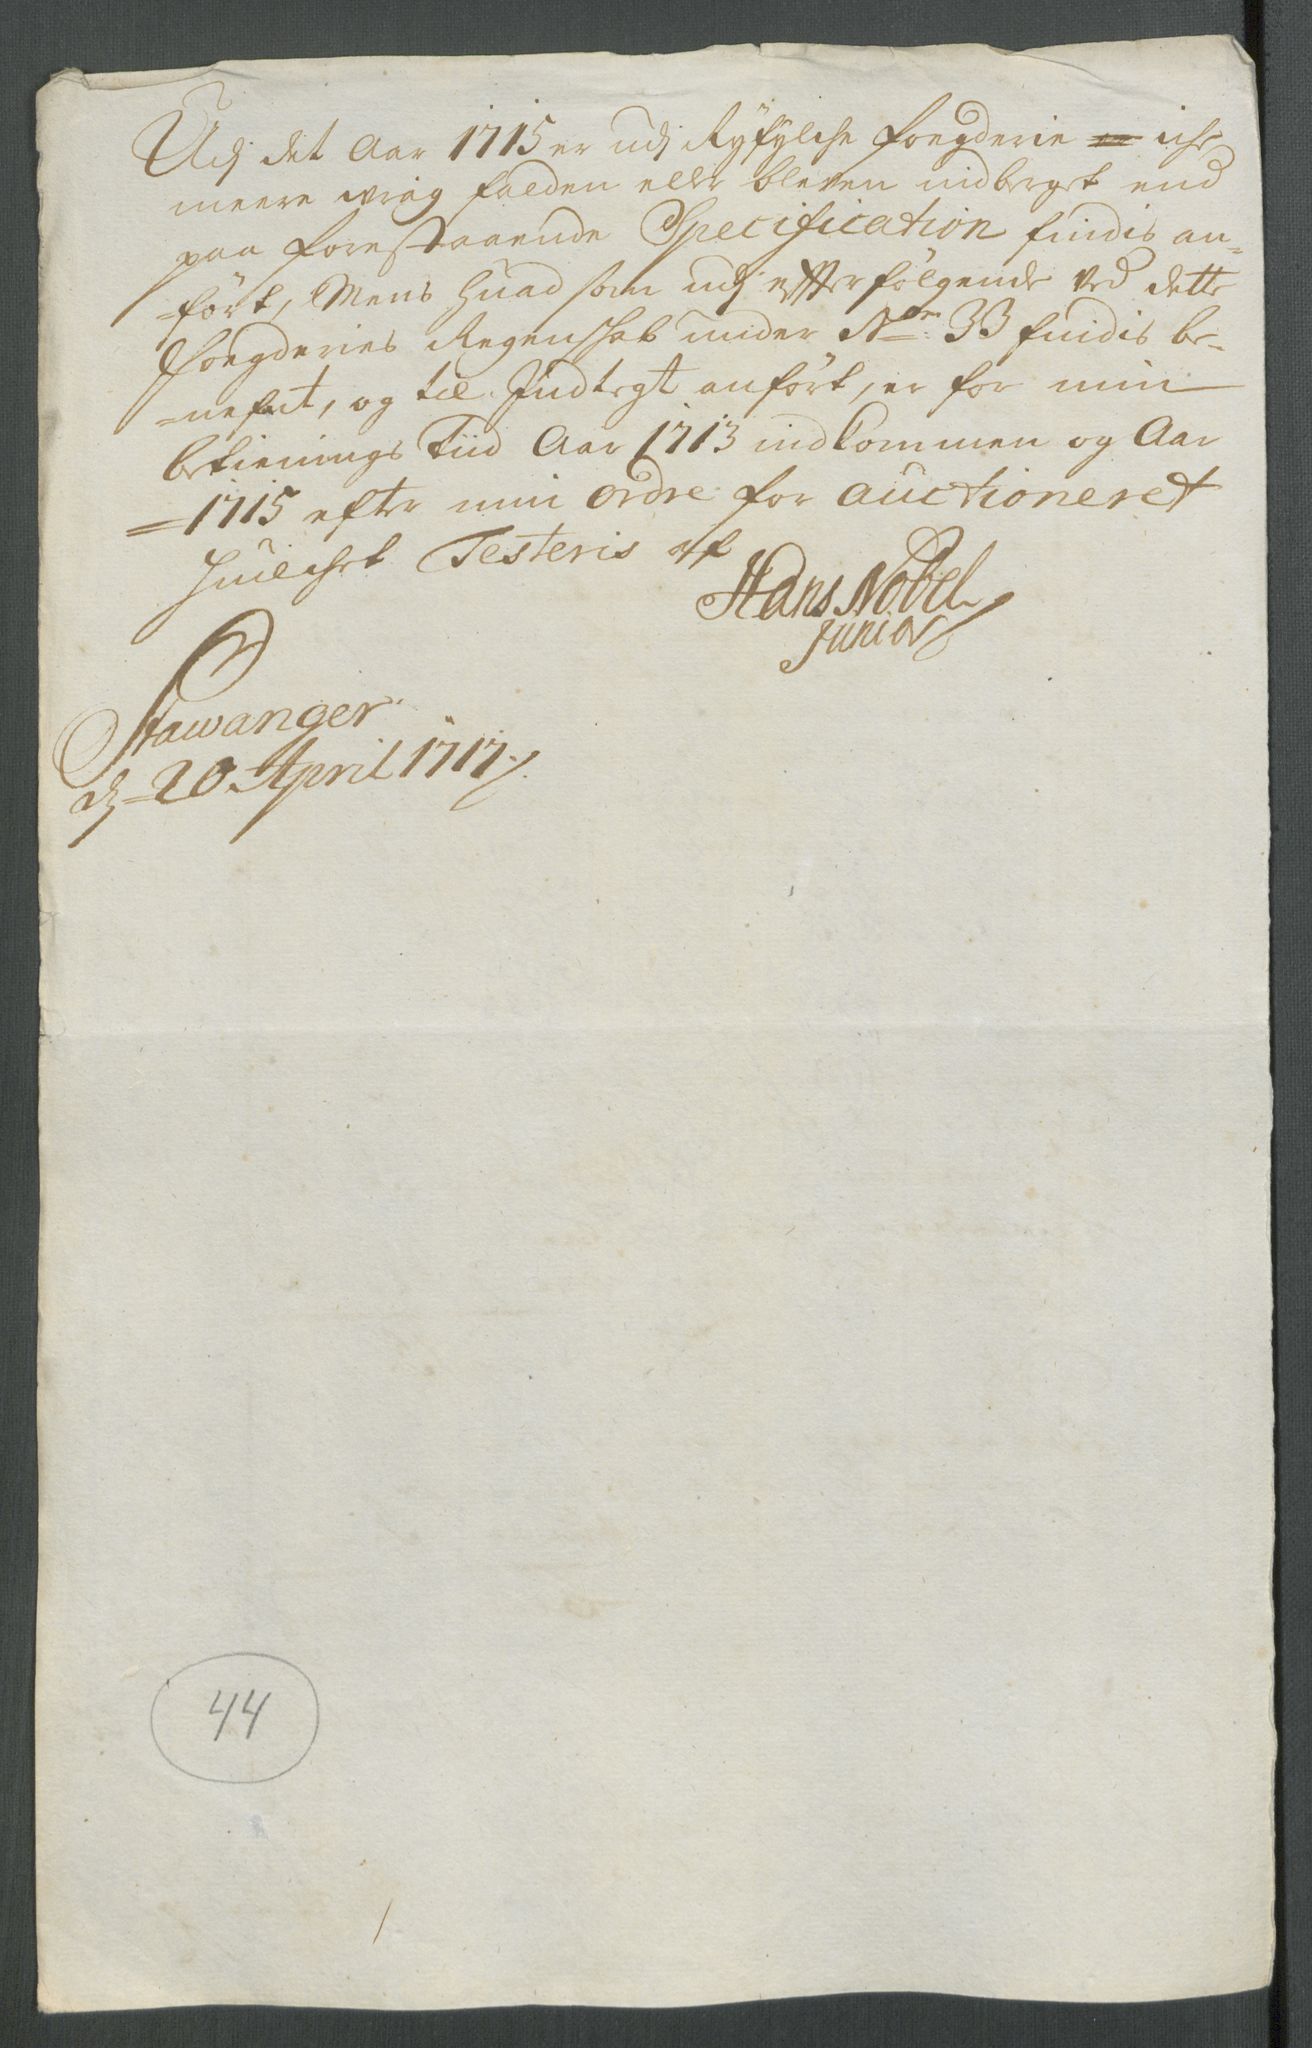 Udj det Aar 1715 er udj Ryfylche foegderie iche
meere wrag falden eller bleven indberget end
paa forestaaende Specification findis an-
ført, Mens huad som udj effterfølgende ved dette
foegderies Regenskab under No. 33 findis be-
=nefnt, og til Indtegt anført, er for min
betienings Tiid Aar 1713 indkommen og Aar
=1715 efter min Ordre for auctioneret
huilchet Testeris af
Hans Nobel
junior
Stawanger
dj 20 April 1717
44